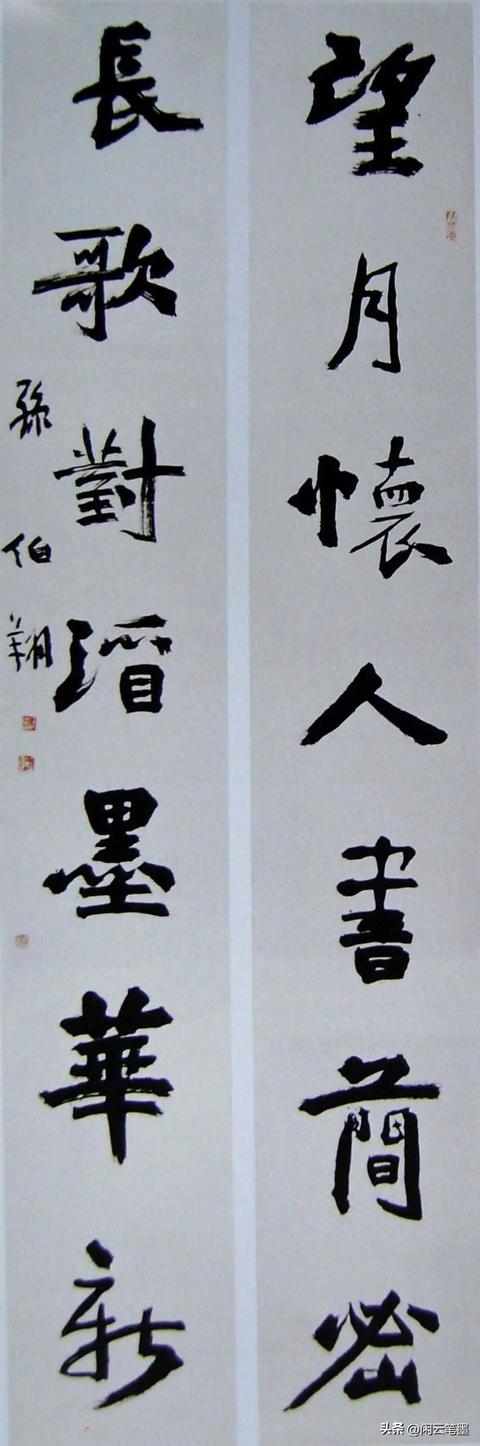 望月懷人書簡密
長歌對酒墨華新
孫伯翔
头条 @闲云笔墨